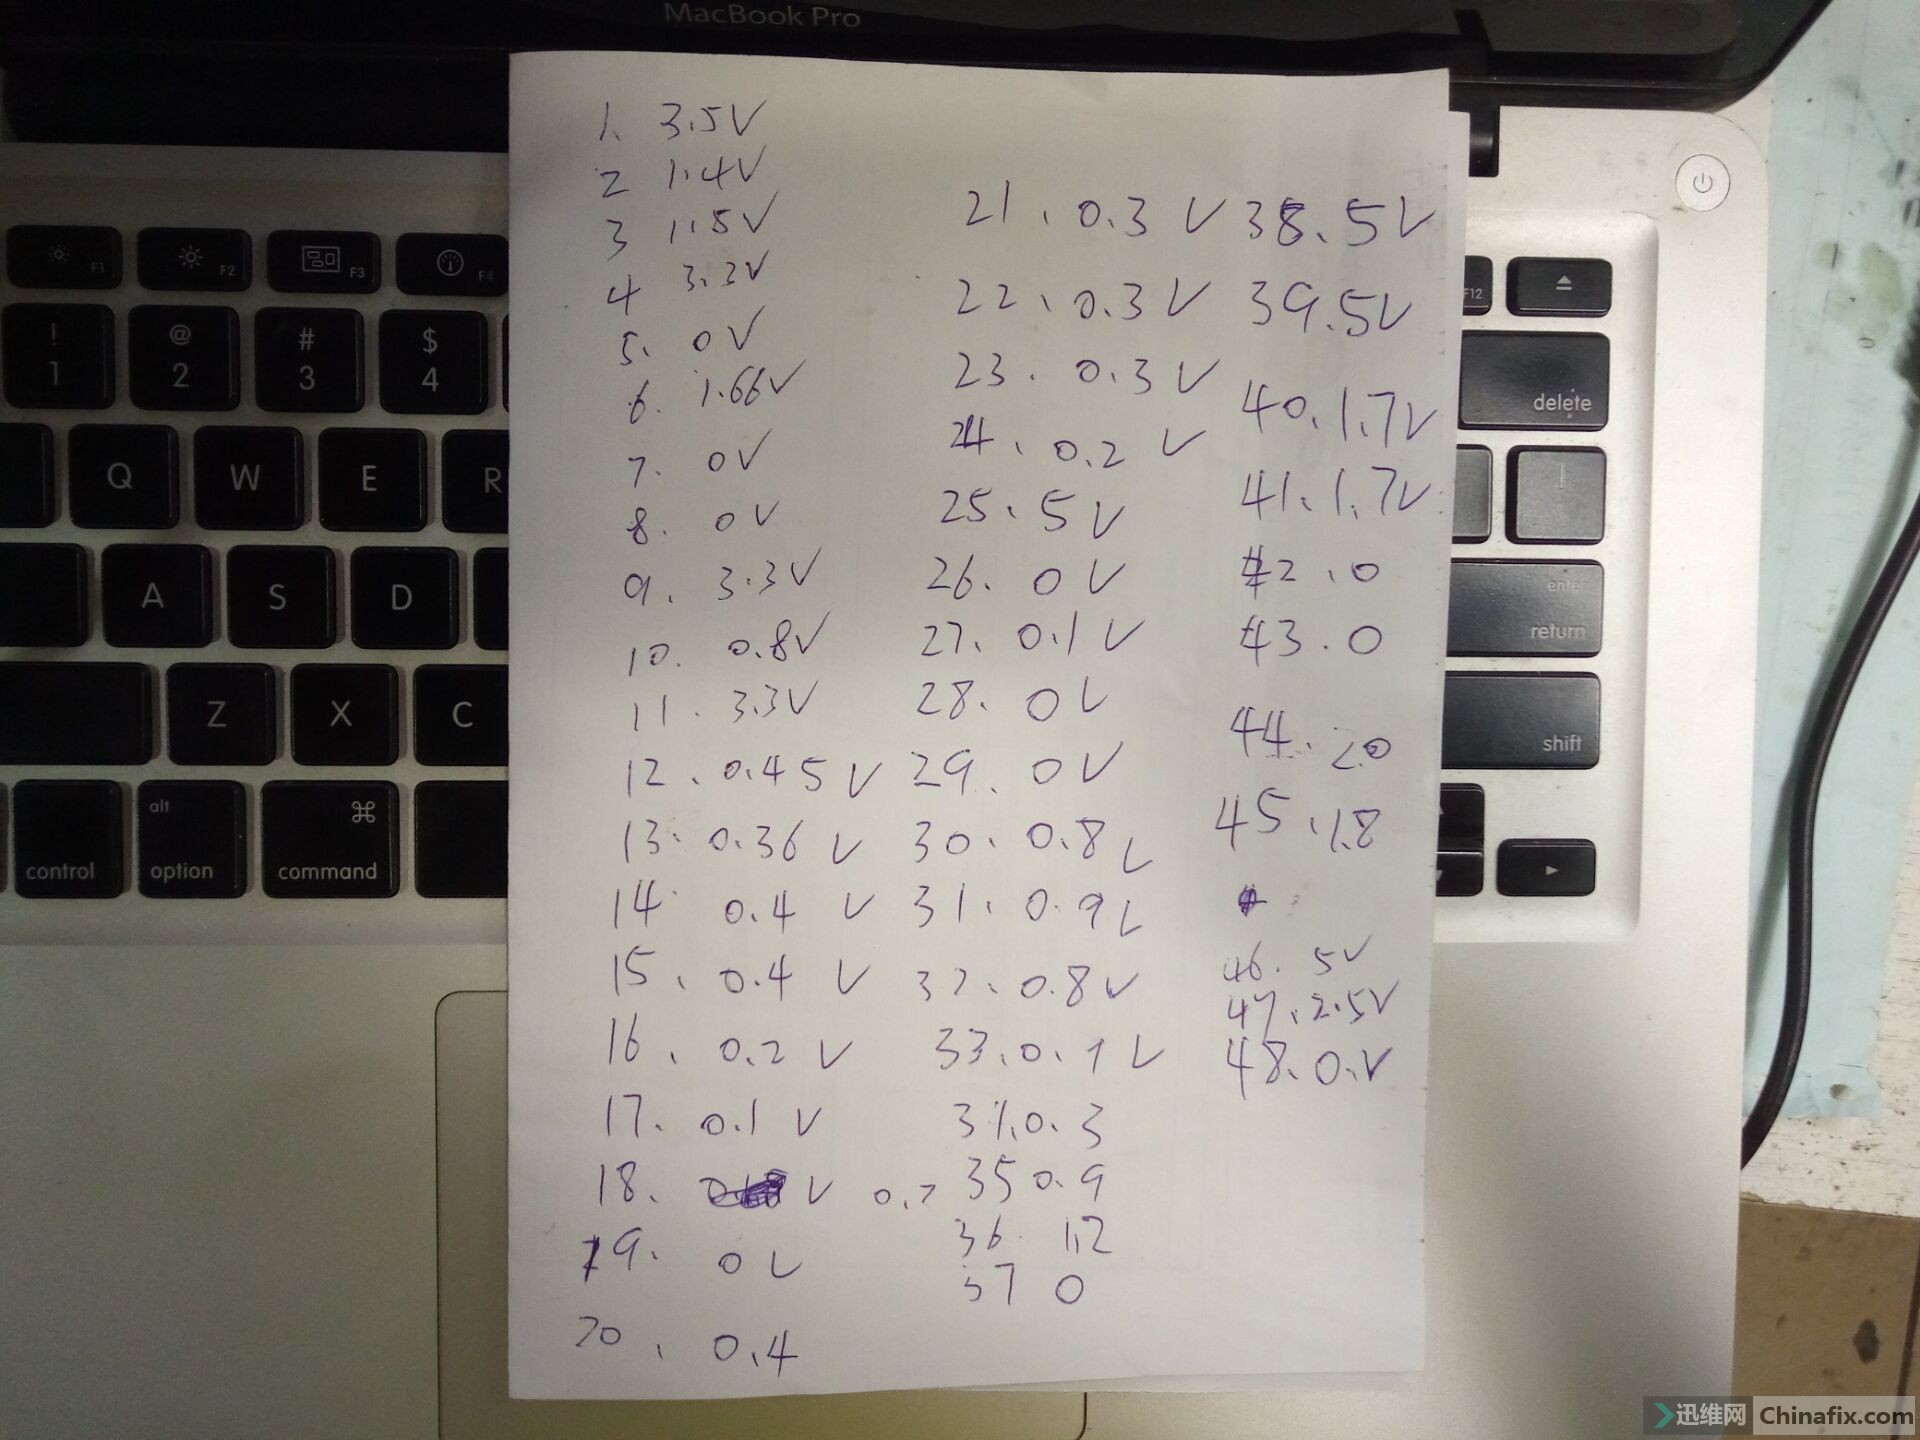 MacBook Pro
1. 3.5V
2 1.4V
3 1.8V
4 3.3V
5. 0V
6. 1.66V
7. 0V
8. 0V
9. 3.3V
10. 0.8V
11. 3.3V
12. 0.45V
13. 0.36V
14 0.4V
15. 0.4V
16. 0.2V
17. 0.1V
18. V 0.7
19. 0V
20. 0.4
21. 0.3V
22. 0.3V
23. 0.3V
24. 0.2V
25. 5V
26. 0V
27. 0.1V
28. 0V
29. 0V
30. 0.8V
31. 0.9V
32. 0.8V
33. 0.1V
34. 0.3
35 0.9
36. 1.2
37 0
38. 5V
39. 5V
40. 1.7V
41. 1.7V
42. 0
43. 0
44. 2.0
45. 1.8
46. 5V
47. 2.5V
48. 0.V
F1
F2
F3
F4
F12
! 1
@ 2
# 3
$ 4
delete
Q
W
E
R
A
S
D
enter
return
Z
X
C
shift
control
alt
option
⌘
command
迅维网 Chinafix.com